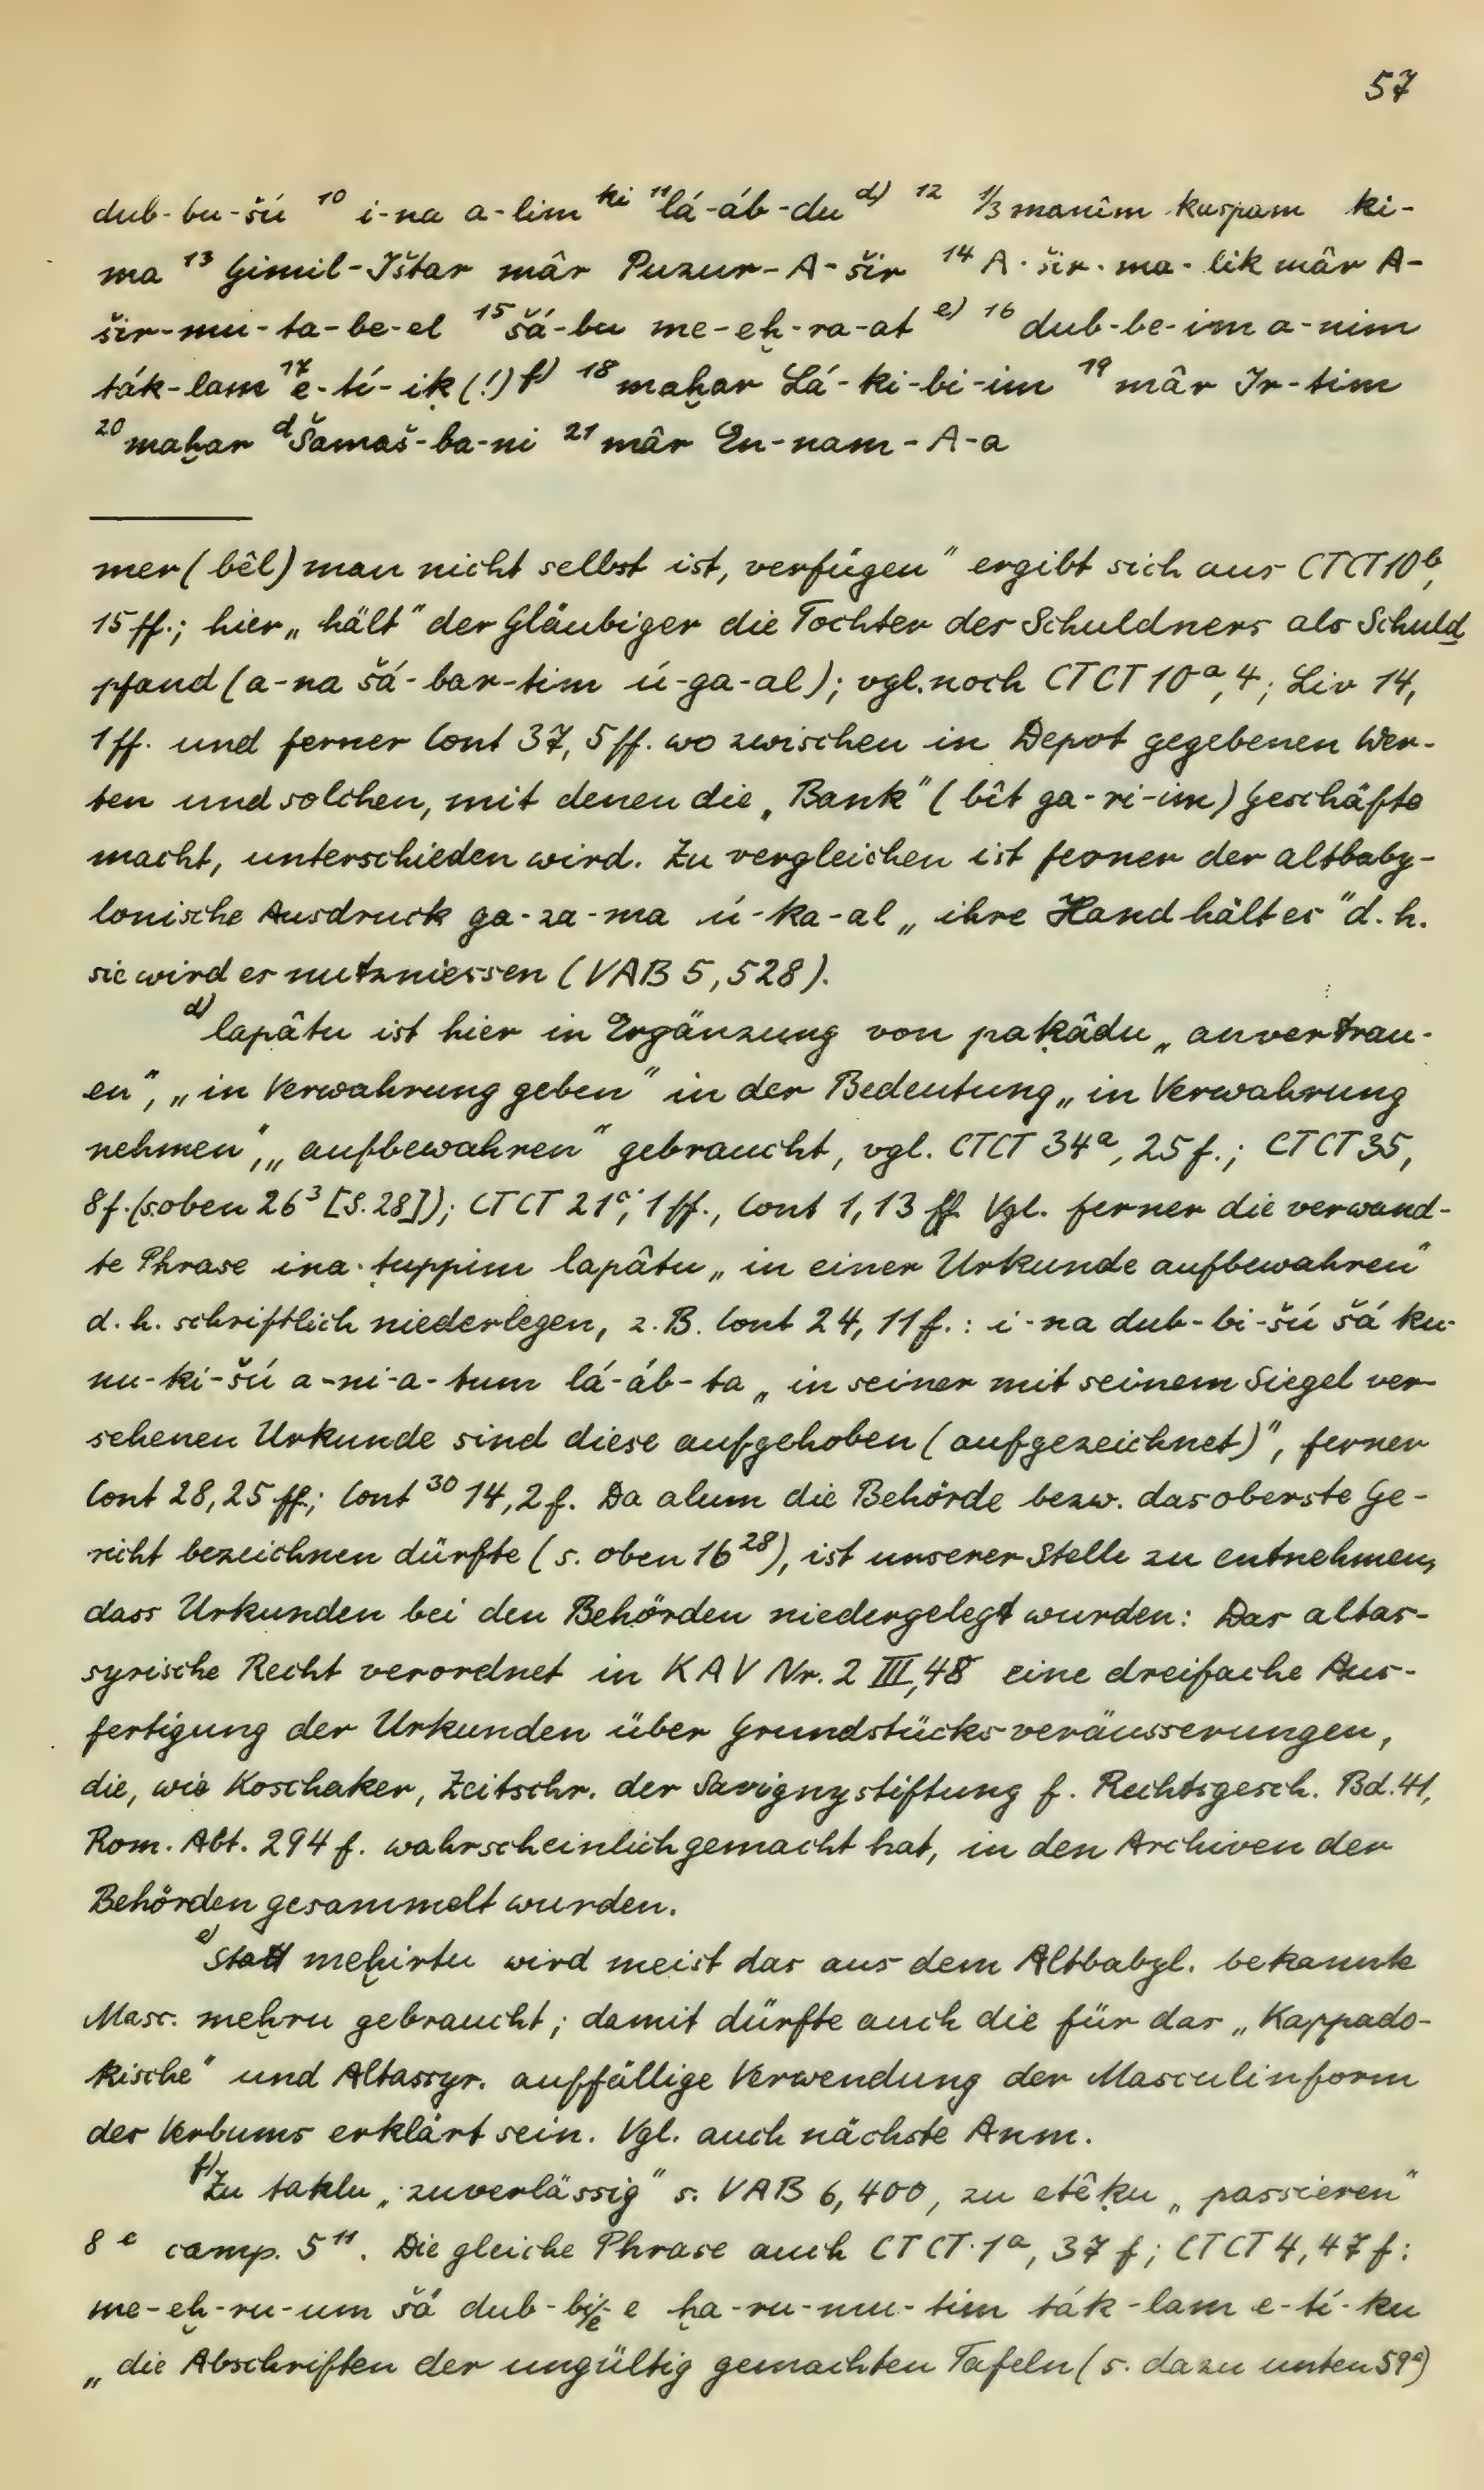 57
dub-bu-šú ¹⁰ i-na a-lim ᵏⁱ ¹¹lá-áb-du ᵈ⁾ ¹² ⅓ manîm kaspam ki-
ma ¹³ Gimil-Ištar mâr Puzur-A-šir ¹⁴ A-šir-ma-lik mâr A-
šir-mu-ta-be-el ¹⁵ šá-bu me-eḫ-ra-at ᵉ⁾ ¹⁶ dub-be-im a-nim
ták-lam ¹⁷ e-tí-iḳ(!) ᶠ⁾ ¹⁸ maḫar Lá-ki-bi-im ¹⁹ mâr Ir-tim
²⁰ maḫar ᵈŠamaš-ba-ni ²¹ mâr En-nam-A-a
mer (bêl) man nicht selbst ist, verfügen" ergibt sich aus CTCT 10ᵇ,
15 ff.; hier „hält" der Gläubiger die Tochter des Schuldners als Schuld
pfand (a-na šá-bar-tim ú-ga-al); vgl. noch CTCT 10ᵃ, 4; Liv 14,
1 ff. und ferner Cont 37, 5 ff. wo zwischen in Depot gegebenen Wer-
ten und solchen, mit denen die „Bank" (bît ga-ri-im) Geschäfte
macht, unterschieden wird. Zu vergleichen ist ferner der altbaby-
lonische Ausdruck ga-za-ma ú-ka-al „ihre Hand hält es" d. h.
sie wird es nutzniessen (VAB 5, 528).
ᵈ⁾ lapâtu ist hier in Ergänzung von paḳâdu „anvertrau-
en", „in Verwahrung geben" in der Bedeutung „in Verwahrung
nehmen", „aufbewahren" gebraucht, vgl. CTCT 34ᵃ, 25 f.; CTCT 35,
8 f. (s. oben 26³ [S. 28]); CTCT 21ᶜ, 1 ff., Cont 1, 13 ff. Vgl. ferner die verwand-
te Phrase ina ṭuppim lapâtu „in einer Urkunde aufbewahren"
d. h. schriftlich niederlegen, z. B. Cont 24, 11 f.: i-na dub-bi-šú šá ku-
nu-ki-šú a-ni-a-tum lá-áb-ta „in seiner mit seinem Siegel ver-
sehenen Urkunde sind diese aufgehoben (aufgezeichnet)", ferner
Cont 28, 25 ff.; Cont ³⁰ 14, 2 f. Da alum die Behörde bezw. das oberste Ge-
richt bezeichnen dürfte (s. oben 16²⁸), ist unserer Stelle zu entnehmen,
dass Urkunden bei den Behörden niedergelegt wurden: Das altas-
syrische Recht verordnet in KAV Nr. 2 III, 48 eine dreifache Aus-
fertigung der Urkunden über Grundstücksveräusserungen,
die, wie Koschaker, Zeitschr. der Savignystiftung f. Rechtsgesch. Bd. 41,
Rom. Abt. 294 f. wahrscheinlich gemacht hat, in den Archiven der
Behörden gesammelt wurden.
ᵉ⁾ Statt meḫirtu wird meist das aus dem Altbabyl. bekannte
Masc. meḫru gebraucht; damit dürfte auch die für das „Kappado-
kische" und Altassyr. auffällige Verwendung der Masculinform
des Verbums erklärt sein. Vgl. auch nächste Anm.
ᶠ⁾ Zu taklu „zuverlässig" s. VAB 6, 400, zu etêḳu „passieren"
8 ᵉ comp. 5¹¹. Die gleiche Phrase auch CTCT 1ᵃ, 37 f; CTCT 4, 47 f:
me-eḫ-ru-um šá dub-bi/e-e ḫa-ru-mu-tim ták-lam e-tí-ku
„die Abschriften der ungültig gemachten Tafeln (s. dazu unten 59ᵃ)